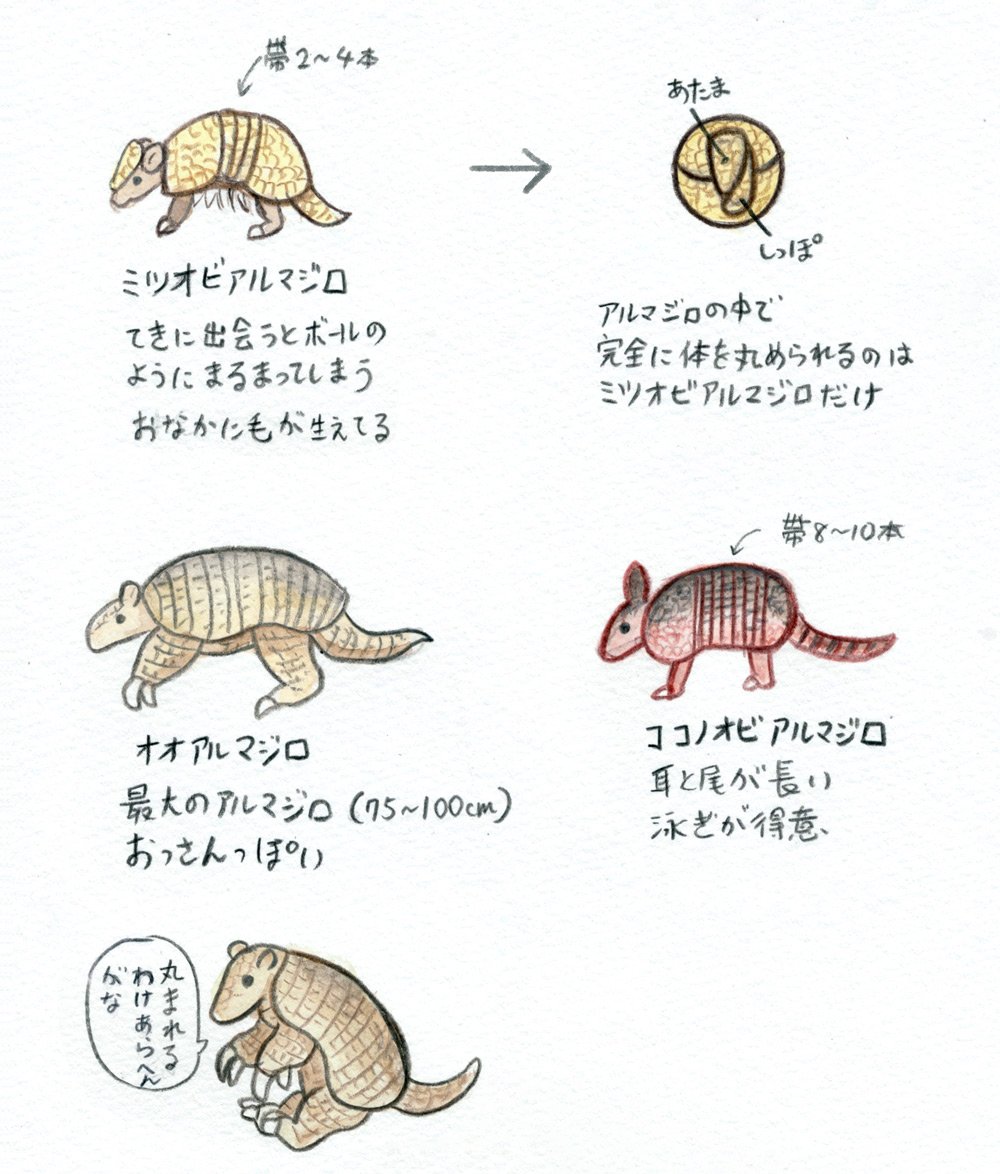 帯2〜4本
ミツオビアルマジロ
てきに出会うとボールの
ようにまるまってしまう
おなかに毛が生えてる
あたま
しっぽ
アルマジロの中で
完全に体を丸められるのは
ミツオビアルマジロだけ
オオアルマジロ
最大のアルマジロ(75〜100cm)
おっさんっぽい
帯8〜10本
ココノオビアルマジロ
耳と尾が長い
泳ぎが得意、
丸まれる
わけあらへん
がな